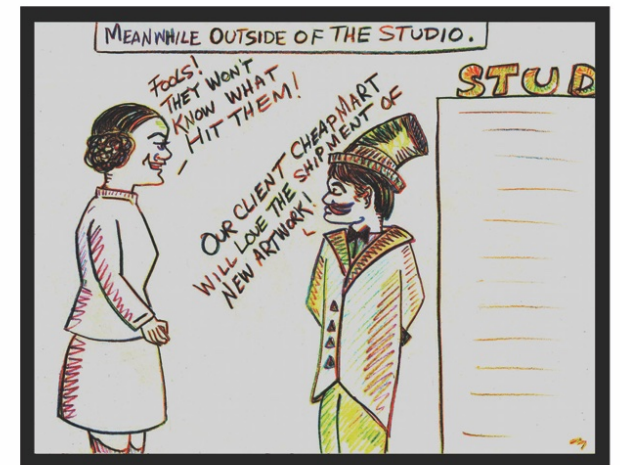 MEANWHILE OUTSIDE OF THE STUDIO.
FOOLS!
THEY WON'T
KNOW WHAT
HIT THEM!
OUR CLIENT CHEAPMART
WILL LOVE THE SHIPMENT OF
NEW ARTWORK!
STUD